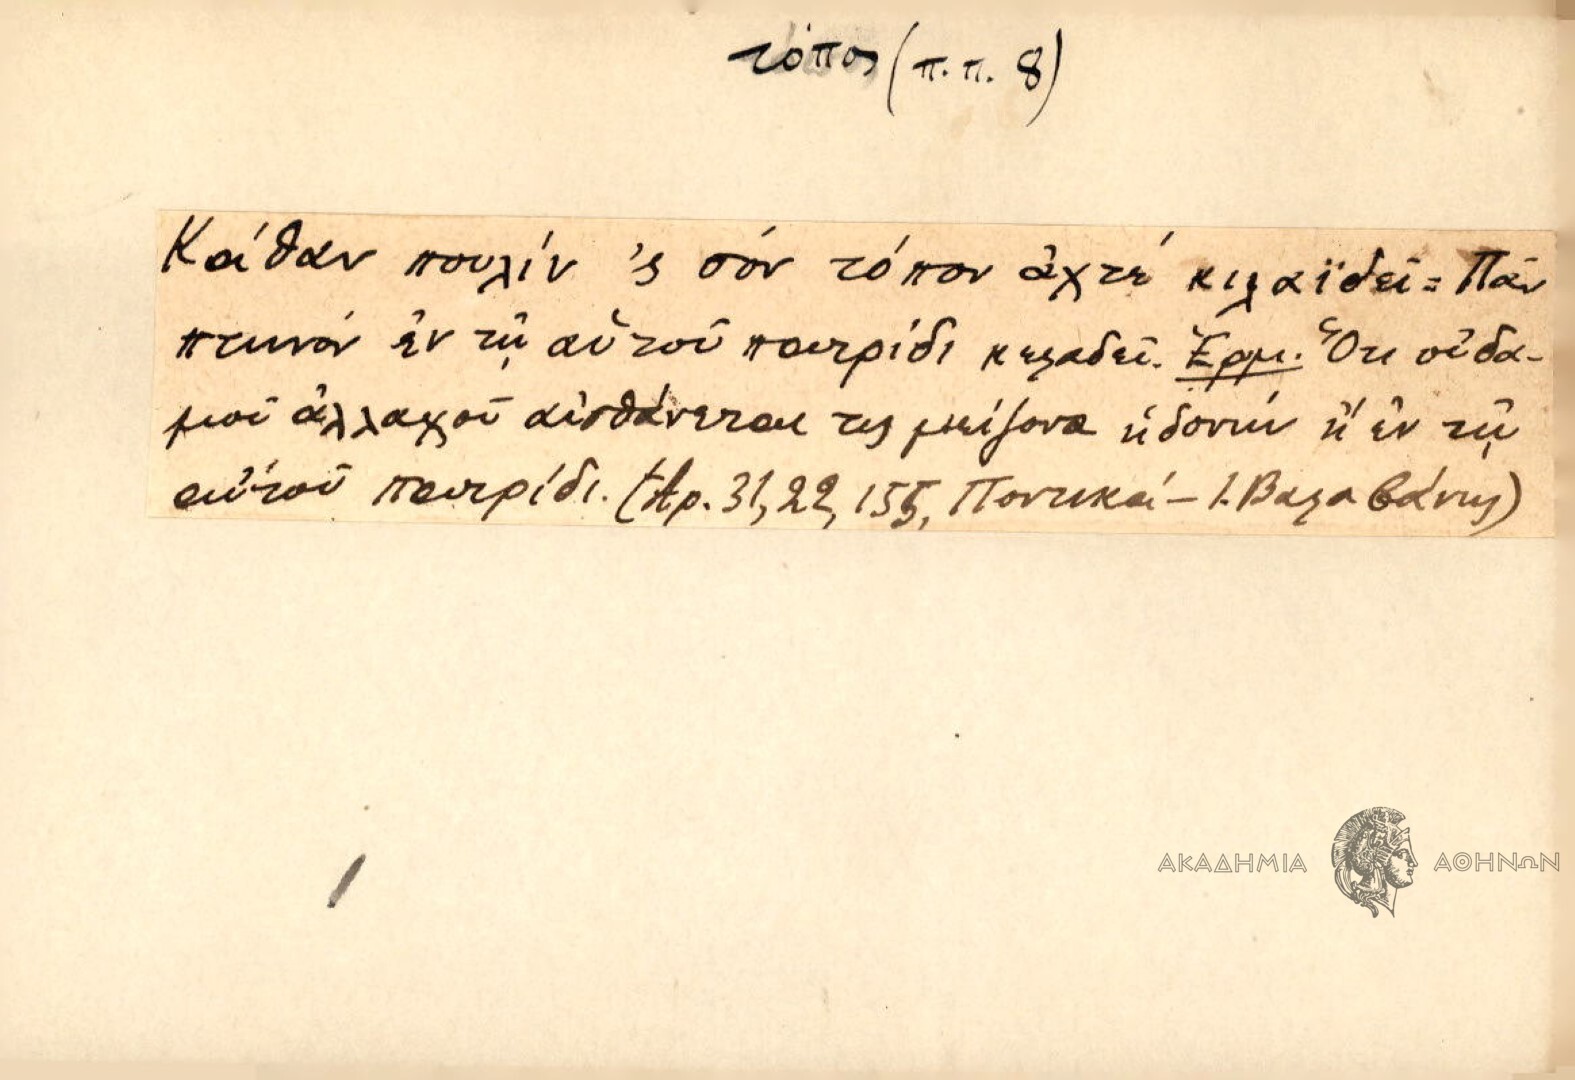 τόπος (π.π. 8)
Κάθαν πουλίν 'ς σόν τόπον ἀχτέ κιλαϊδεῖ = Πᾶν
πτηνόν ἐν τῇ αὑτοῦ πατρίδι κελαδεῖ. Ἑρμ. Ὅτι οὐδα-
μοῦ ἀλλαχοῦ αἰσθάνεται τις μείζονα ἡδονήν ἤ ἐν τῇ
αὑτοῦ πατρίδι. (Ἀρ. 31, 22, 155, Ποντικαί - Ι. Βαλαβάνης)
ΑΚΑΔΗΜΙΑ ΑΘΗΝΩΝ